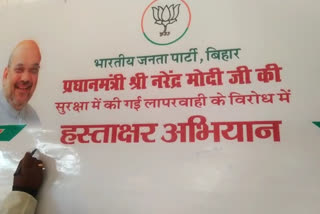 भारतीय जनता पार्टी, बिहार
प्रधानमंत्री श्री नरेंद्र मोदी जी की
सुरक्षा में की गई लापरवाही के विरोध में
हस्ताक्षर अभियान